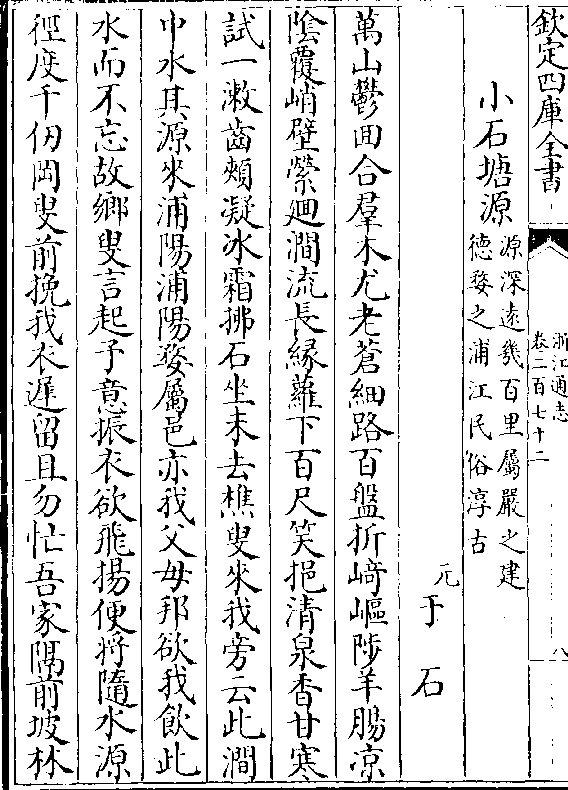 欽定四庫全書
浙江通志
卷二百七十二
八
小石塘源
源深遠幾百里屬嚴之建
德婺之浦江民俗淳古
元于石
萬山鬱囬合羣木尤老蒼細路百盤折﨑嶇陟羊腸凉
陰覆峭壁縈廻澗流長緣蘿下百尺笑挹清泉香甘寒
試一漱齒頰凝氷霜拂石坐未去樵叟來我旁云此澗
中水其源來浦陽浦陽婺屬邑亦我父母邦欲我飲此
水而不忘故鄉叟言起予意振衣欲飛揚便將隨水源
徑度千仞岡叟前挽我衣遲留且勿忙吾家隔前坡林